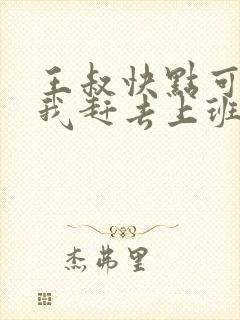 王叔快點可
我赶去上班
杰弗里